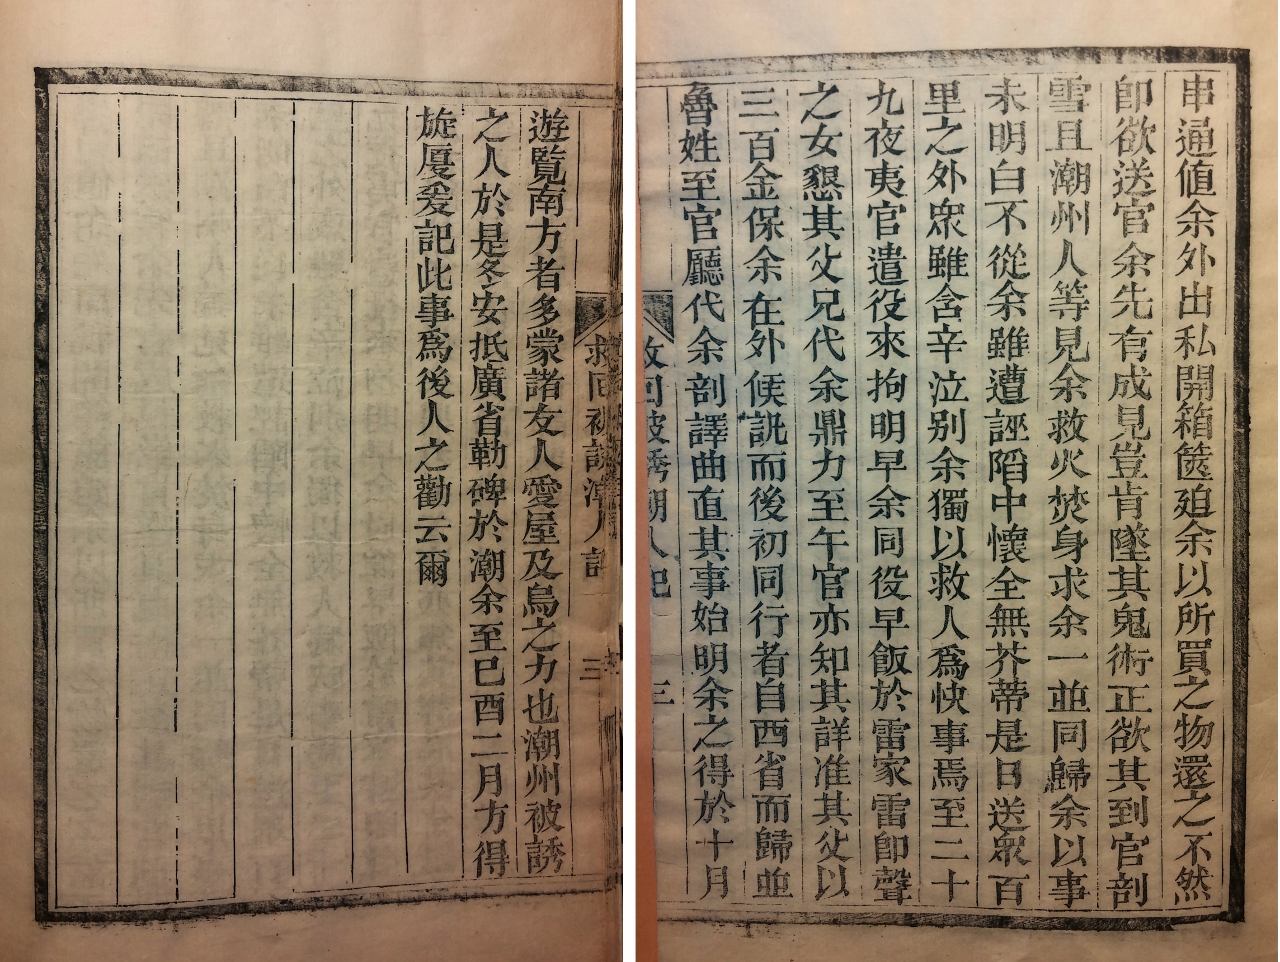 串通値余外出私開箱篋廹余以所買之物還之不然
卽欲送官余先有成見豈肯墜其鬼術正欲其到官剖
雪且潮州人等見余救火焚身求余一並同歸余以事
未明白不從余雖遭誣陷中懷全無芥蒂是日送衆百
里之外衆雖含辛泣别余獨以救人爲快事焉至二十
九夜夷官遣役來拘明早余同役早飯於雷家雷卽聲
之女懇其父兄代余鼎力至午官亦知其詳准其父以
三百金保余在外候訊而後初同行者自西省而歸並
魯姓至官廳代余剖譯曲直其事始明余之得於十月
救回被誘潮人記
三
救回被誘潮人記
三
遊覧南方者多蒙諸友人愛屋及烏之力也潮州被誘
之人於是冬安抵廣省勒碑於潮余至已酉二月方得
旋厦爰記此事爲後人之勸云爾